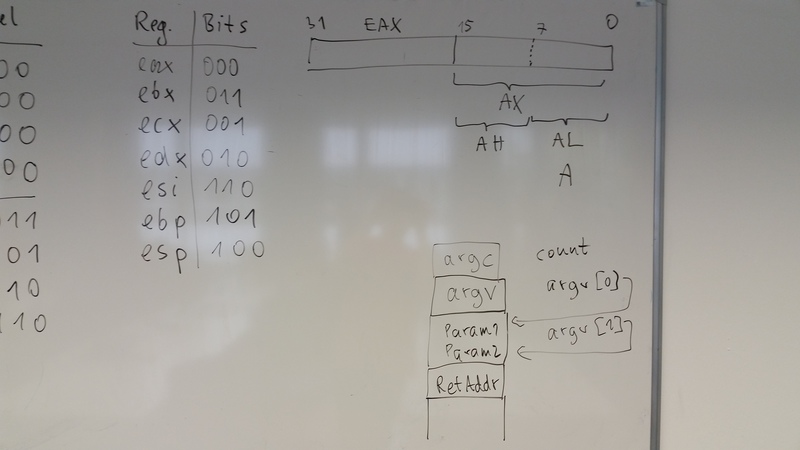 el
00
00
00
00
011
01
10
110
Reg. Bits
eax 000
ebx 011
ecx 001
edx 010
esi 110
ebp 101
esp 100
31 EAX 15 7 0
AX
AH AL
A
argc count
argv argv[0]
Param1 argv[1]
Param2
RetAddr